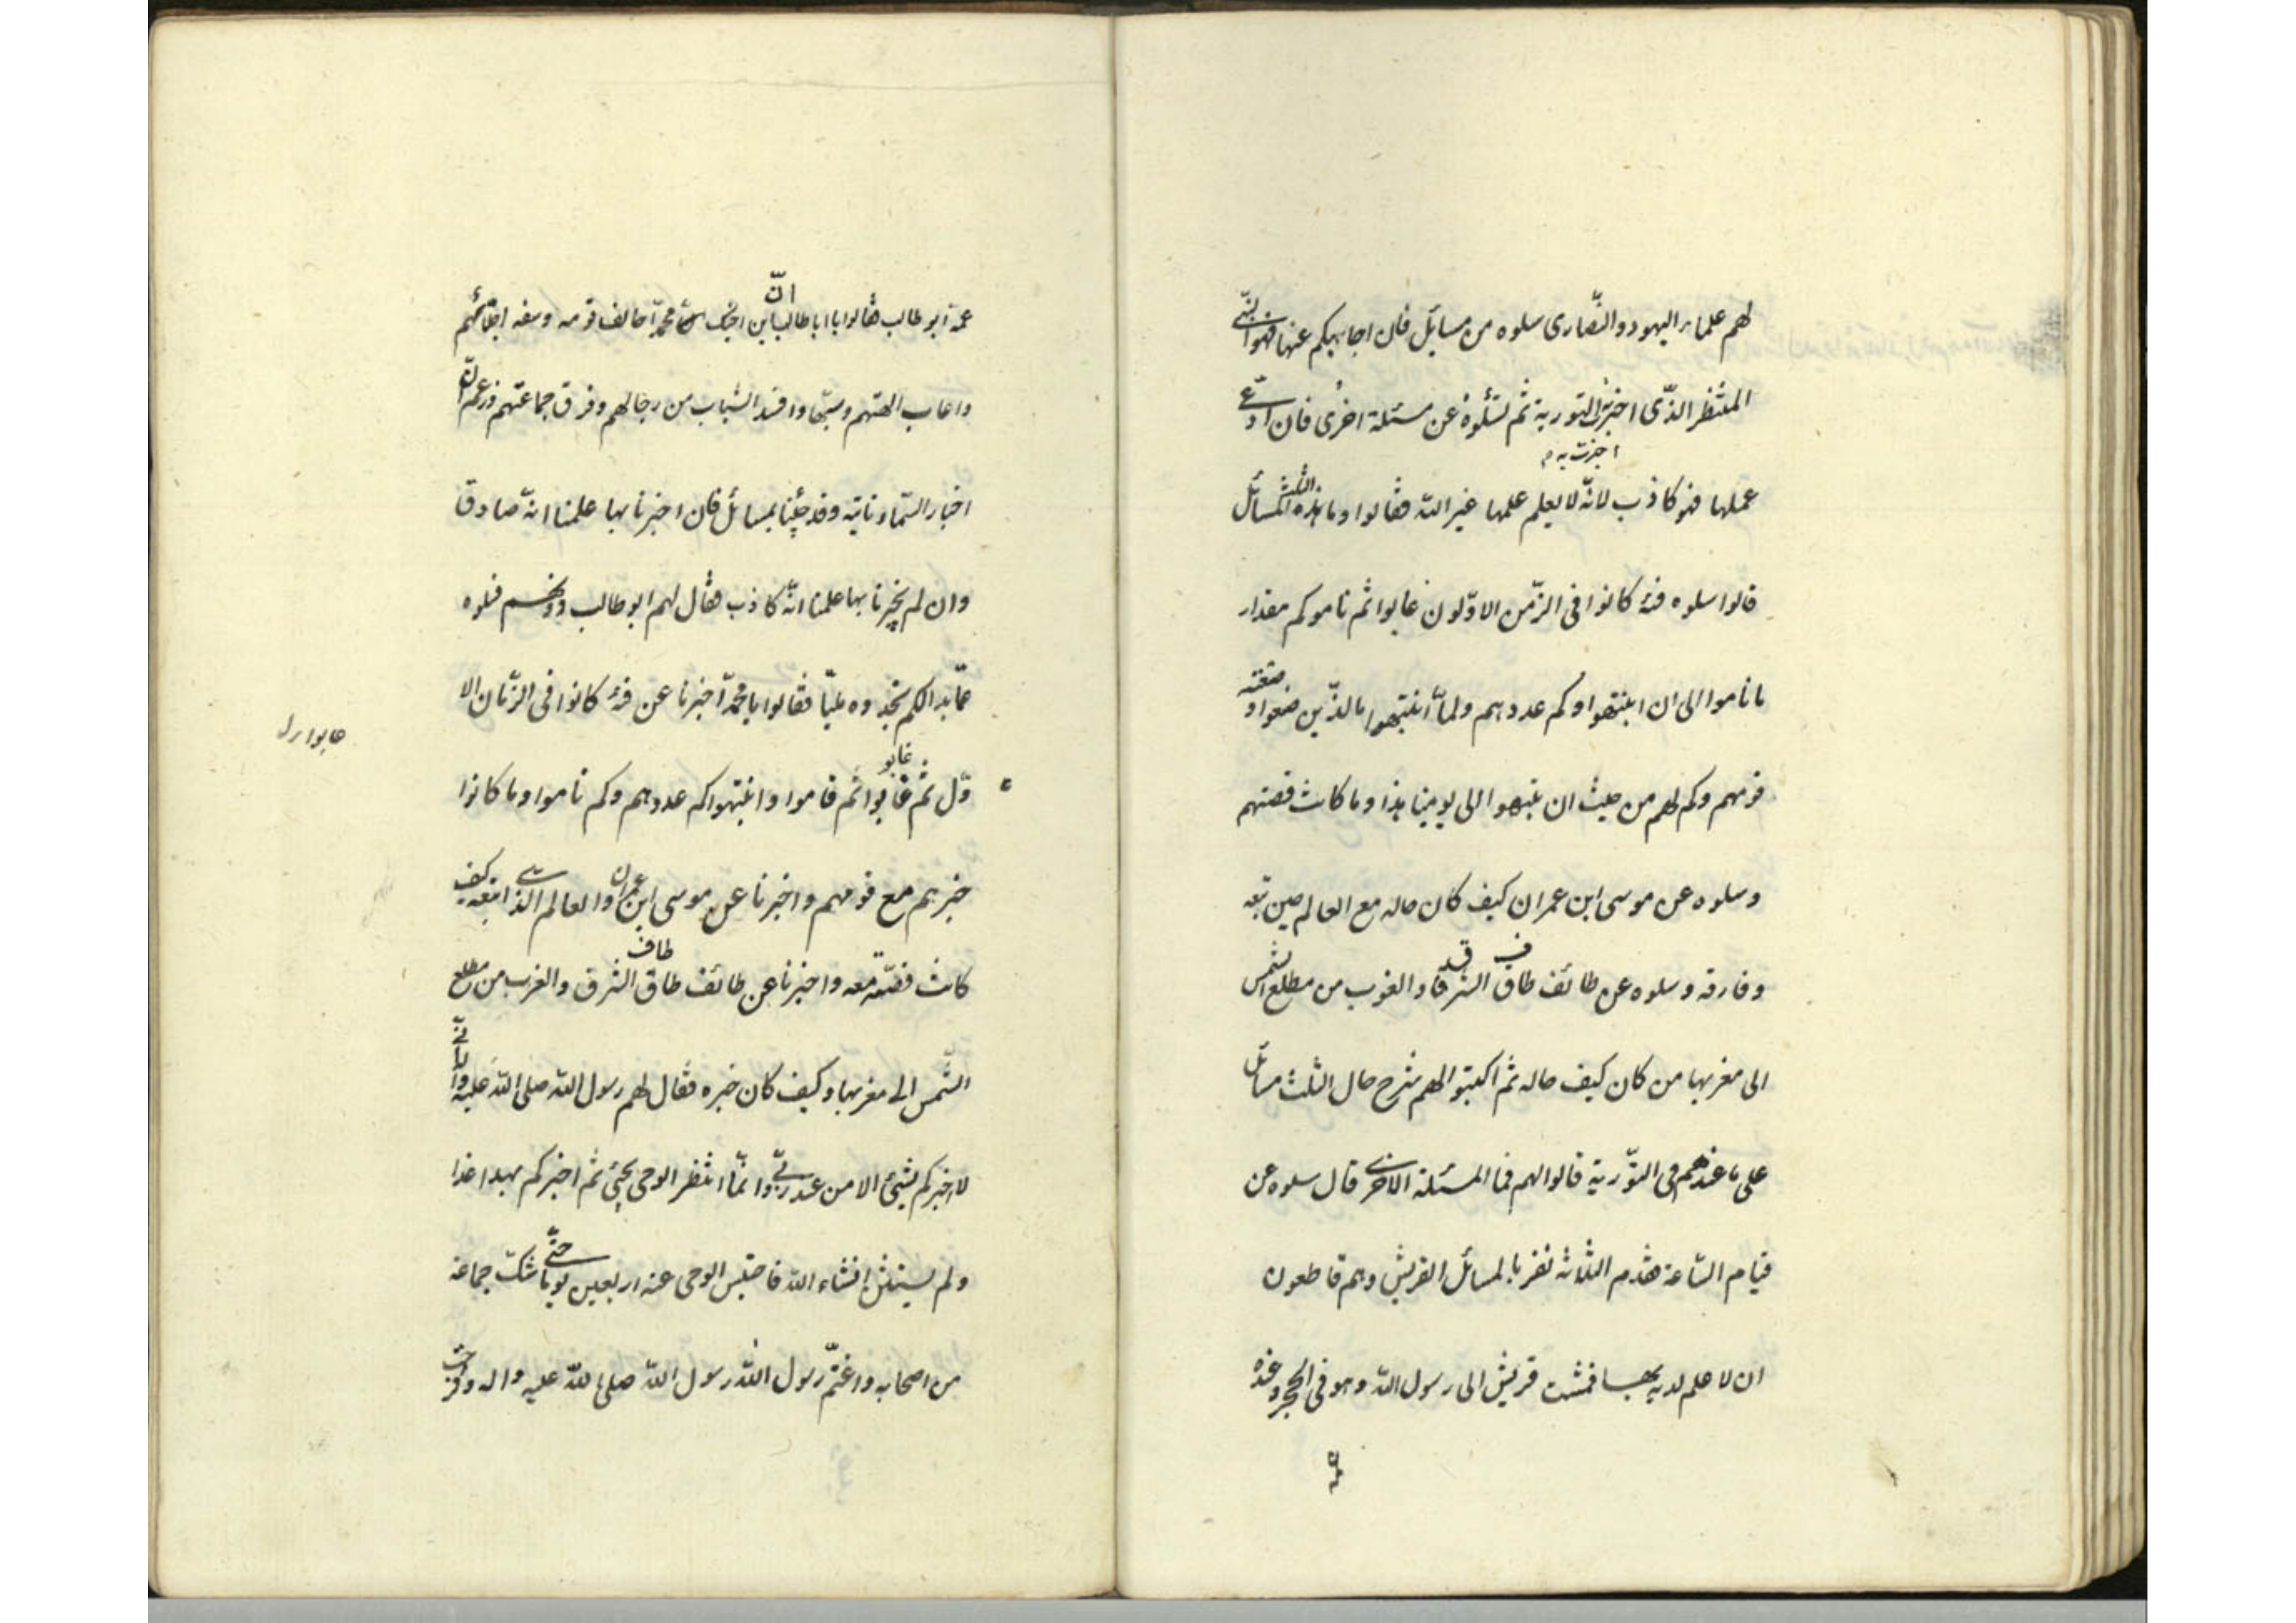 لهم علماء اليهود والنّصارى سلوه من مسايل فان اجابيكم عنها فهو النّبى
المنتظر الذّى اخبرت به التورية ثم تسئلوه عن مسئلة اخرى فان ادّعى
اخبرت به م
عملها فهو كاذب لانّه لا يعلم علمها غير اللّه فقالوا وما هذه الثلث المسائل
قالوا سلوه فئة كانوا فى الزّمن الاوّلون غابوا ثم ناموكم مقدار
ما ناموا الى ان انتبهوا وكم عددهم ولمّا انتبهوا ما لذّين صنعوا و صنعته
قومهم وكم لهم من حيث ان نتبهوا الى يومينا هذا وما كانت قصتهم
وسلوه عن موسى ابن عمران كيف كان حاله مع العالم حين تبعه
وفارقه وسلوه عن طائف طاق الشرقا والغرب من مطلع الشمس
الى مغربها من كان كيف حاله ثم اكتبوا لهم شرح حال الثلث مسائل
على ما عندهم فى التّورية قالوا لهم فما المسئلة الاخرى قال سلوه عن
قيام السّاعة فقدم الثلاثة نفر بالمسائل القريش وهم قاطعون
ان لا علم لديه بها فمشت قريش الى رسول اللّه وهو فى الحجر وعنده
عمّه
عمّه ابو طالب فقالوا يا ابا طالب انّ ابن اخيك محمّدا خالف قومه وسفه احلامهم
وا عاب الهتهم وسبّها وافسد الشباب من رجالهم وفرق جماعتهم وزعم انّ
اخبار السّماء تاتيه وقد جئنا بمسائل فان اخبرنا بها علمنا انّه صادق
وان لم يخبرنا بها علمنا انّه كاذب فقال لهم ابو طالب دونكم فسلوه
عمّا بدالكم تجدوه مليّا فقالوا يا محمّد اخبرنا عن فئة كانوا فى الزّمان الا
وّل ثم غابوا ثم قاموا وانتبهوا كم عددهم وكم ناموا وما كانوا
غابو
خبرهم مع قومهم واخبرنا عن موسى ابن عمران والعالم الذى اتبعه كيف
كانت قصّته معه واخبرنا عن طائف طاق الشرق والغرب من مطلع
طاف
الشّمس الى مغربها وكيف كان خبره فقال لهم رسول اللّه صلى اللّه عليه وآله انّى
لا اخبركم بشيئ الا من عند ربّى وانّما انتظر الوحى يجيئ ثم اخبركم بهدا غدا
ولم يستثن انشاء اللّه فاحتبس الوحى عنه اربعين يوما حتّى شكّت جماعة
من اصحابه واغتمّ رسول اللّه رسول اللّه صلى اللّه عليه واله وفرحت